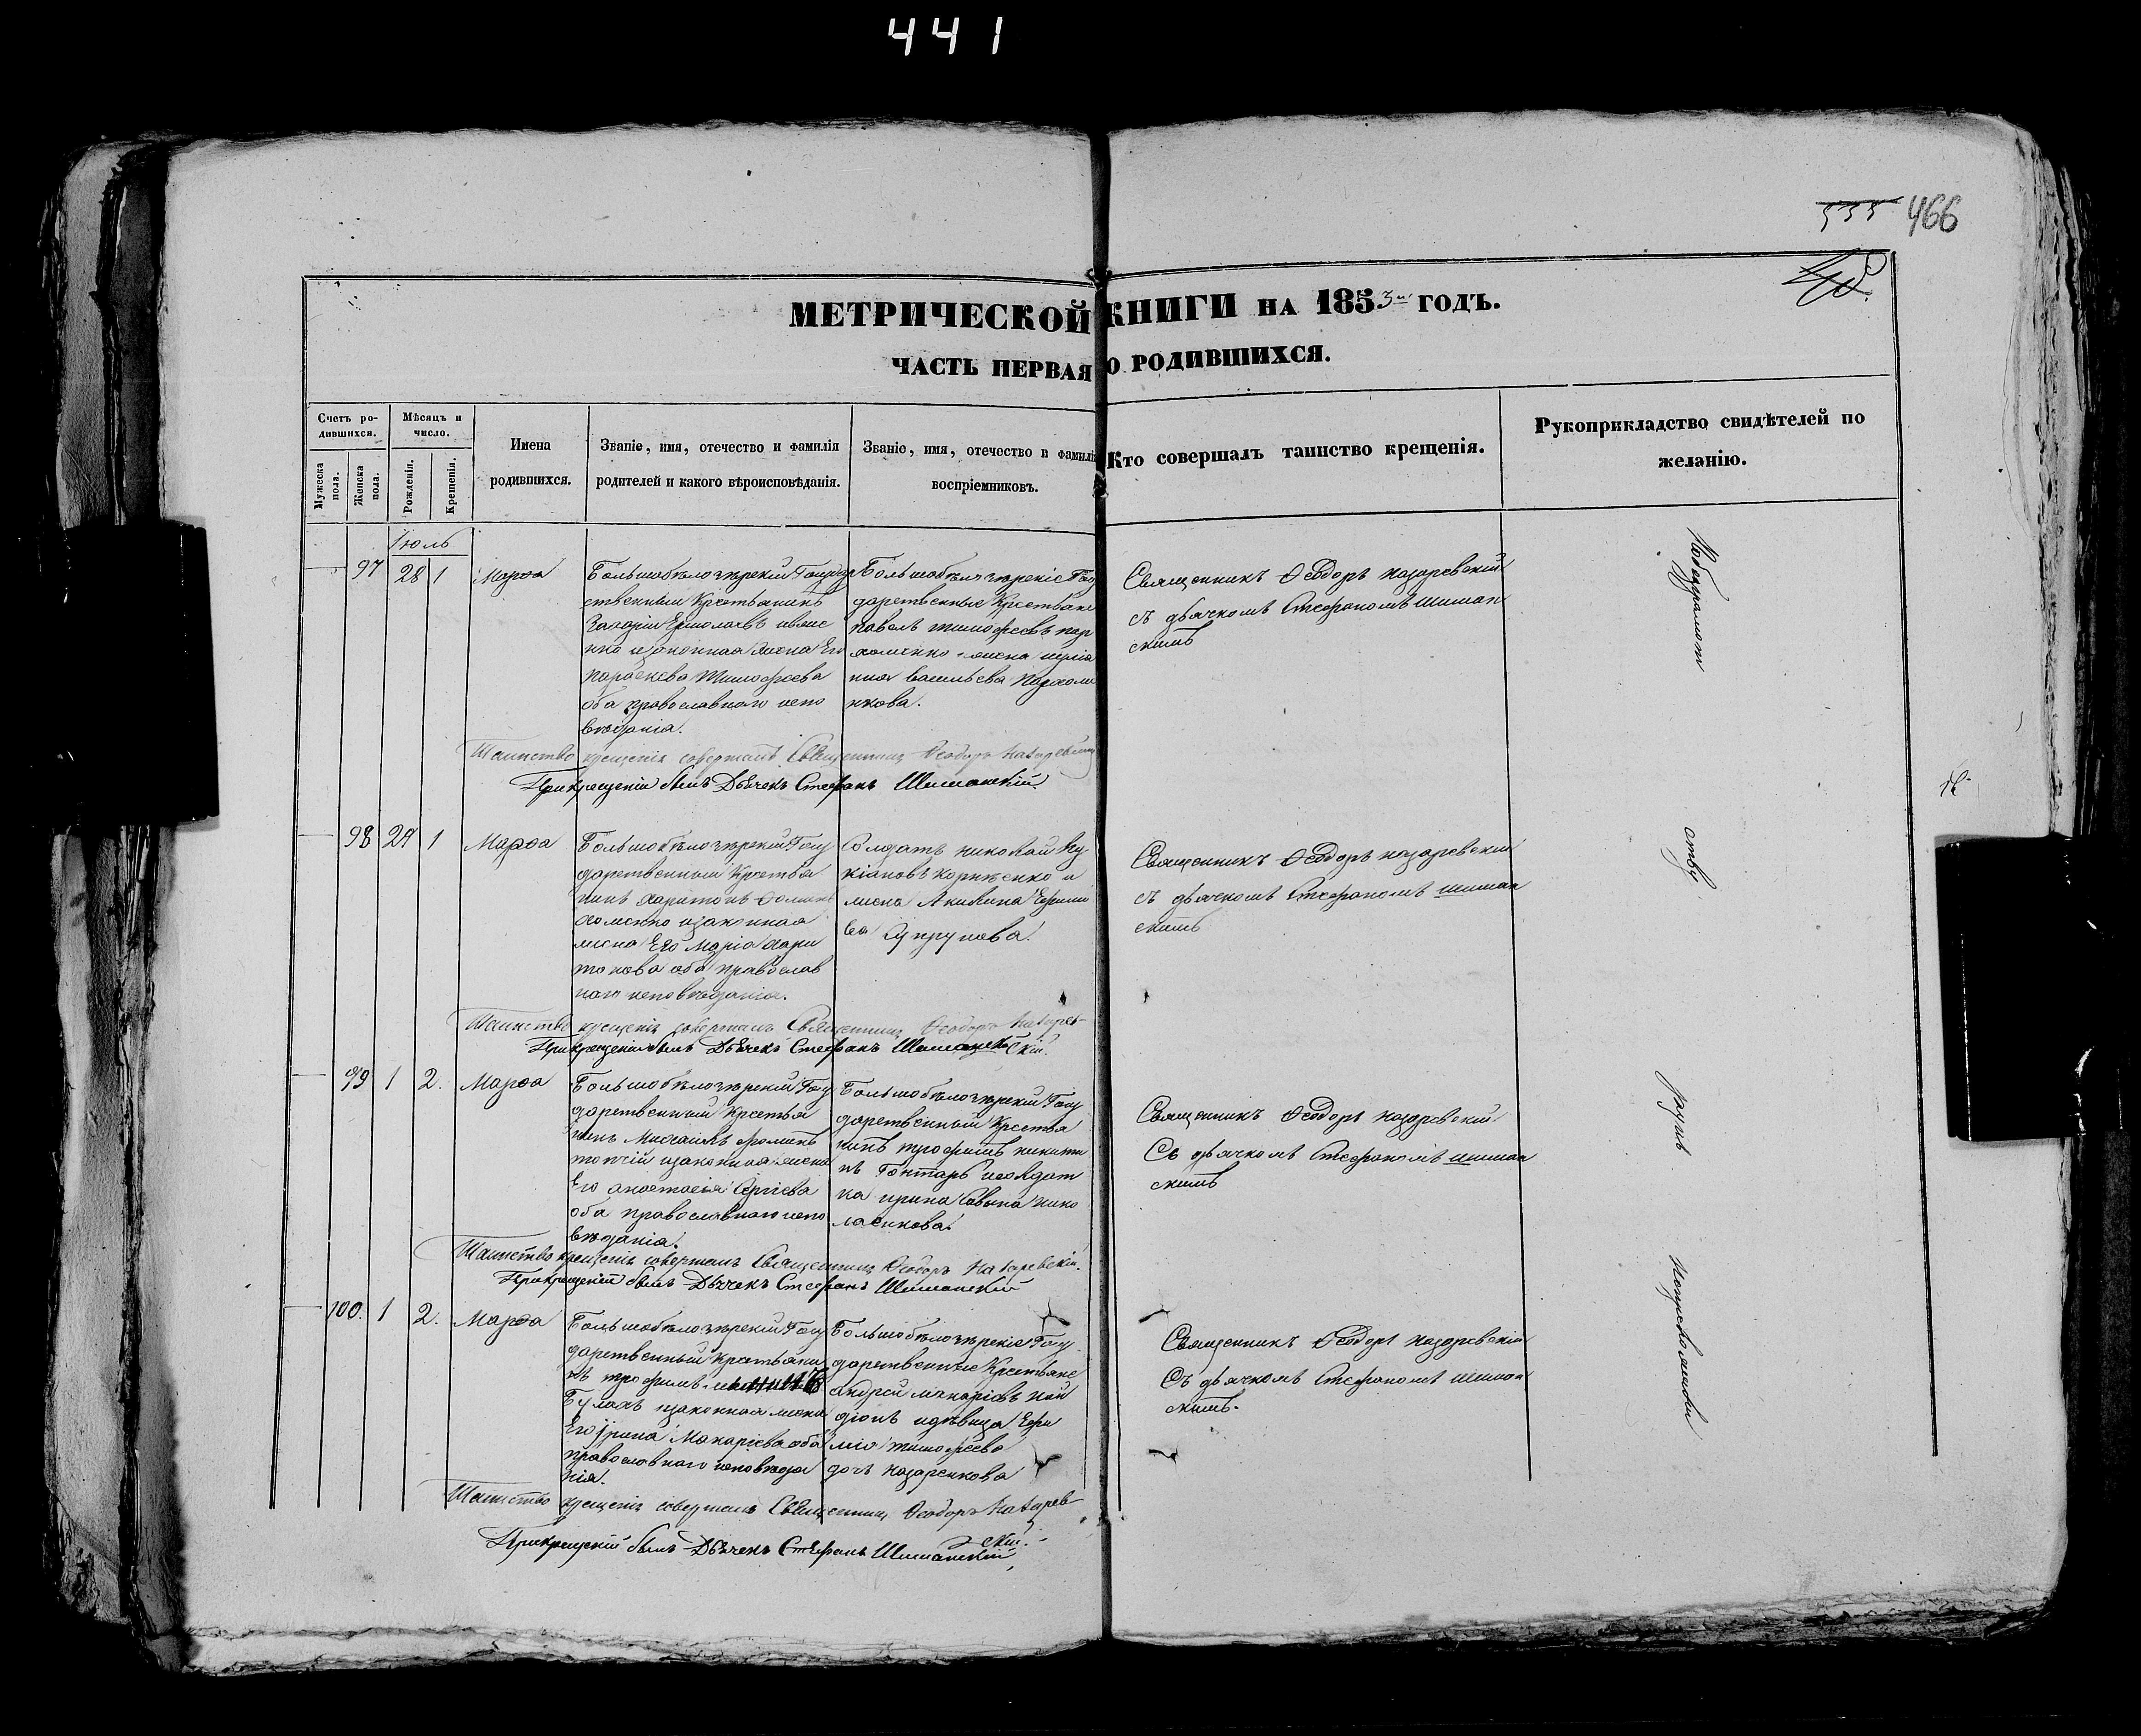 441
535 466
МЕТРИЧЕСКОЙ КНИГИ НА 1853й ГОДЪ.
ЧАСТЬ ПЕРВАЯ О РОДИВШИХСЯ.
Счетъ ро-
дившихся.
Мужеска пола.
Женска пола.
Мѣсяцъ и
число.
Рожденія.
Крещенія.
Имена
родившихся.
Званіе, имя, отечество и фамилія
родителей и какого вѣроисповѣданія.
Званіе, имя, отечество и фамилія
воспріемниковъ.
Кто совершалъ таинство крещенія.
Рукоприкладство свидѣтелей по
желанію.
Іюль
97 28 1 Марѳа
Большобѣлозѣрскій Госуда
рственный Крестьянинъ
Захарій Ермолаевъ
нко изаконная жена Его
Параскева Тимофеева
оба православнаго испо
вѣданія.
Большобѣлозѣрскіе Госу
дарственные Крестьяне
Павелъ тимофеевъ пар
хоменко жена
Васильева Пархоме
нкова.
Священникъ Ѳеодоръ Назаревскій
съ дьячкомъ Стефаномъ шиман
скимъ
Таинство крещенія совершалъ Священникъ Ѳеодоръ Назаревскій
При крещеніи былъ Дьячекъ Стефанъ Шиманскій
98 29 1 Марѳа
Большобѣлозѣрскій Госу
дарственный Крестья
нинъ Харитонъ Ѳоминъ
Хоменко изаконная
жена Его Марія Хари
тонова оба православ
наго исповѣданія.
Солдатъ николай Лу
кіановъ Корнѣенко и
жена Акилина Ефимо
ва Супрунова.
Священникъ Ѳеодоръ назаревскій
съ дьячкомъ Стефаномъ шиман
скимъ
Таинство крещенія совершалъ Священникъ Ѳеодоръ Назарев-
скій.
При крещеніи былъ Дьячекъ Стефанъ Шиманскій
99 1 2. Марѳа
Большобѣлозѣрскій Госу
дарственный Крестья
нинъ Михаилъ фоминъ
топчій изаконная жена
Его анастасія Сергіева
оба православнаго испо
вѣданія.
Большобѣлозѣрскій Госу
дарственный Крестья
нинъ трофимъ никити
нъ Гонтарь исолдат
ка ирина Савина нико
лаенкова.
Священникъ Ѳеодоръ назаревскій
Съ дьячкомъ Стефаномъ шиман
скимъ
Таинство крещенія совершалъ Священникъ Ѳеодоръ Назаревскій.
При крещеніи былъ Дьячекъ Стефанъ Шиманскій
100. 1 2. Марѳа
Большобѣлозѣрскій Госу
дарственный Крестьяни
нъ трофимъ
Булахъ изаконная жена
Его Ірина Макаріева оба
православнаго исповѣда
нія.
Большобѣлозѣрскіе Госу
дарственные Крестьяне
андрей макаріевъ Кан
діонъ идѣвица Ефи
мія тимофеева
дочь назаренкова
Священникъ Ѳеодоръ назаревскій
Съ дьячкомъ Стефаномъ шиман
скимъ.
Таинство крещенія совершалъ Священникъ Ѳеодоръ Назарев-
скій.
При крещеніи былъ Дьячекъ Стефанъ Шиманскій